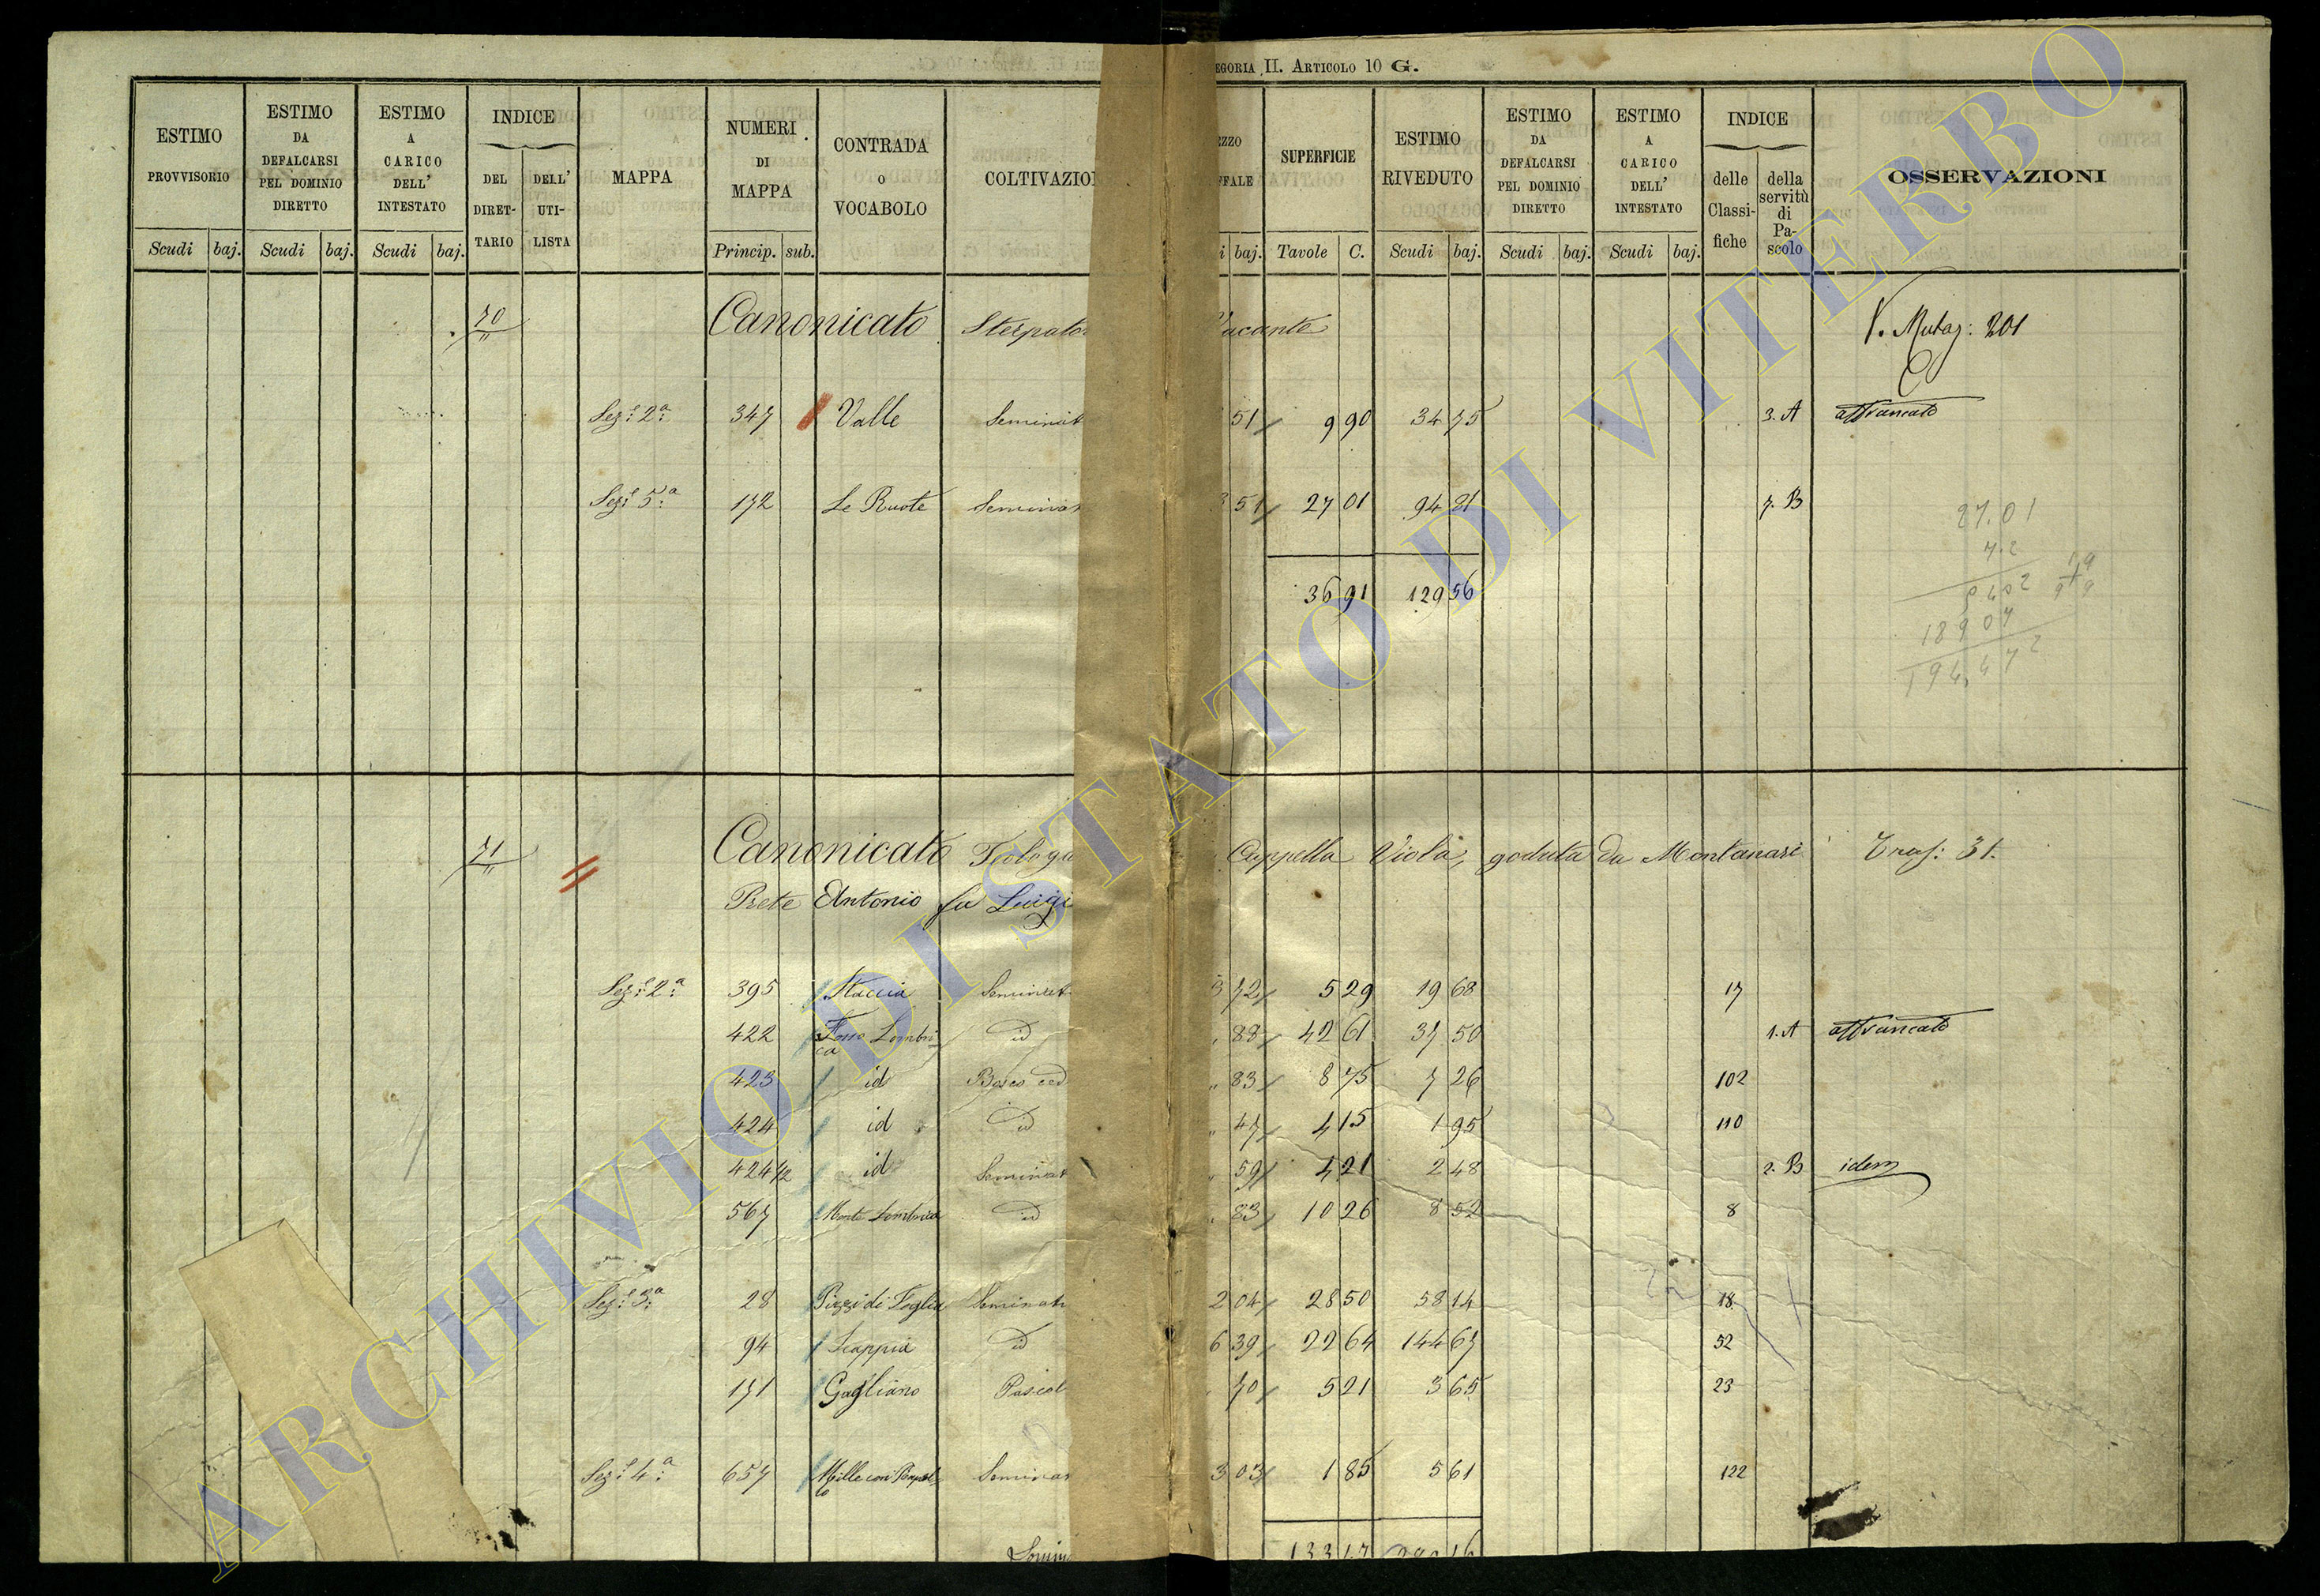 EGORIA II. ARTICOLO 10 G.
ESTIMO PROVVISORIO
ESTIMO DA DEFALCARSI PEL DOMINIO DIRETTO
ESTIMO A CARICO DELL' INTESTATO
INDICE
DEL DIRET-TARIO
DELL' UTI-LISTA
MAPPA
NUMERI DI MAPPA
CONTRADA O VOCABOLO
COLTIVAZIO
Scudi baj. Scudi baj. Scudi baj. Princip. sub.
EZZO FFALE
SUPERFICIE
ESTIMO RIVEDUTO
ESTIMO DA DEFALCARSI PEL DOMINIO DIRETTO
ESTIMO A CARICO DELL' INTESTATO
INDICE
delle Classi-fiche
della servitù di Pa-scolo
OSSERVAZIONI
i baj. Tavole C. Scudi baj. Scudi baj. Scudi baj.
70 Canonicato Sterpato acante V. Mutaz: 201
Sez: 2ª 347 Valle Seminat 51 9 90 34 75 3. A affrancato
Sez: 5ª 172 Le Ruote Seminat 3 51 27 01 94 81 7. B
36 91 129 56
27.01
7.2
5402
18907
194,472
71 Canonicato Teologa Cappella Viola, goduta da Montanari Traf: 31.
Prete Antonio fu Luigi
Sez: 2ª 395 Staccia Seminat 3 72 5 29 19 68 17
422 Fosso Lombrica id 88 42 61 37 50 1. A affrancato
423 id Bosco ced 83 8 75 7 26 102
424 id id 47 4 15 1 95 110
424 1/2 id Seminat 59 4 21 2 48 2. B idem
567 Monte Lombrica id 83 10 26 8 52 8
Sez: 3ª 28 Pizzi di Teglia Seminat 2 04 28 50 58 14 18
94 Scappia id 6 39 22 64 144 67 52
171 Gagliano Pascol 70 5 21 3 65 23
Sez: 4ª 657 Seminat 3 03 1 85 5 61 122
133 17
ARCHIVIO DI STATO DI VITERBO